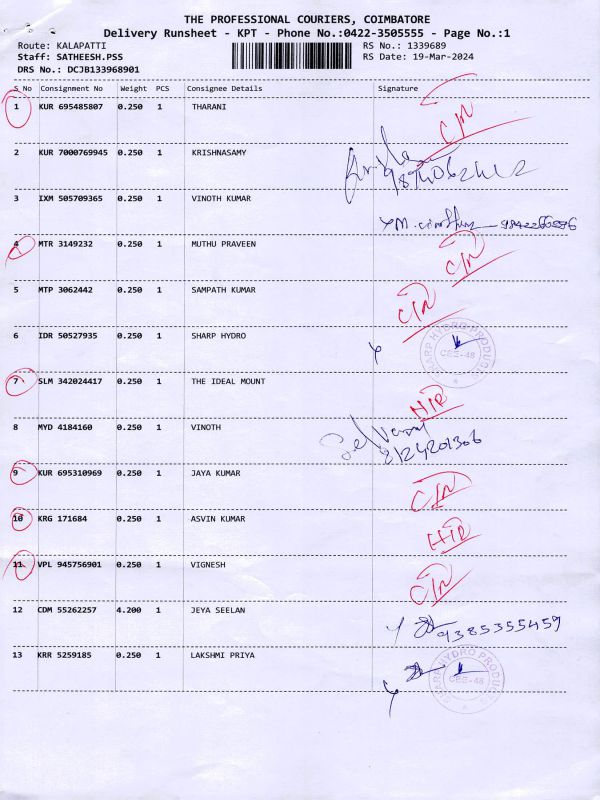 THE PROFESSIONAL COURIERS, COIMBATORE
Delivery Runsheet - KPT - Phone No.:0422-3505555 - Page No.:1
Route: KALAPATTI RS No.: 1339689
Staff: SATHEESH.PSS RS Date: 19-Mar-2024
DRS No.: DCJB133968901
S No Consignment No Weight PCS Consignee Details Signature
1 KUR 695485807 0.250 1 THARANI
2 KUR 7000769945 0.250 1 KRISHNASAMY
3 IXM 505709365 0.250 1 VINOTH KUMAR
4 MTR 3149232 0.250 1 MUTHU PRAVEEN
5 MTP 3062442 0.250 1 SAMPATH KUMAR
6 IDR 50527935 0.250 1 SHARP HYDRO
SHARP HYDRO PRODUCTS
CBE-48
7 SLM 342024417 0.250 1 THE IDEAL MOUNT
8 MYD 4184160 0.250 1 VINOTH
9 KUR 695310969 0.250 1 JAYA KUMAR
10 KRG 171684 0.250 1 ASVIN KUMAR
11 VPL 945756901 0.250 1 VIGNESH
12 CDM 55262257 4.200 1 JEYA SEELAN
9385355459
13 KRR 5259185 0.250 1 LAKSHMI PRIYA
CBE-48